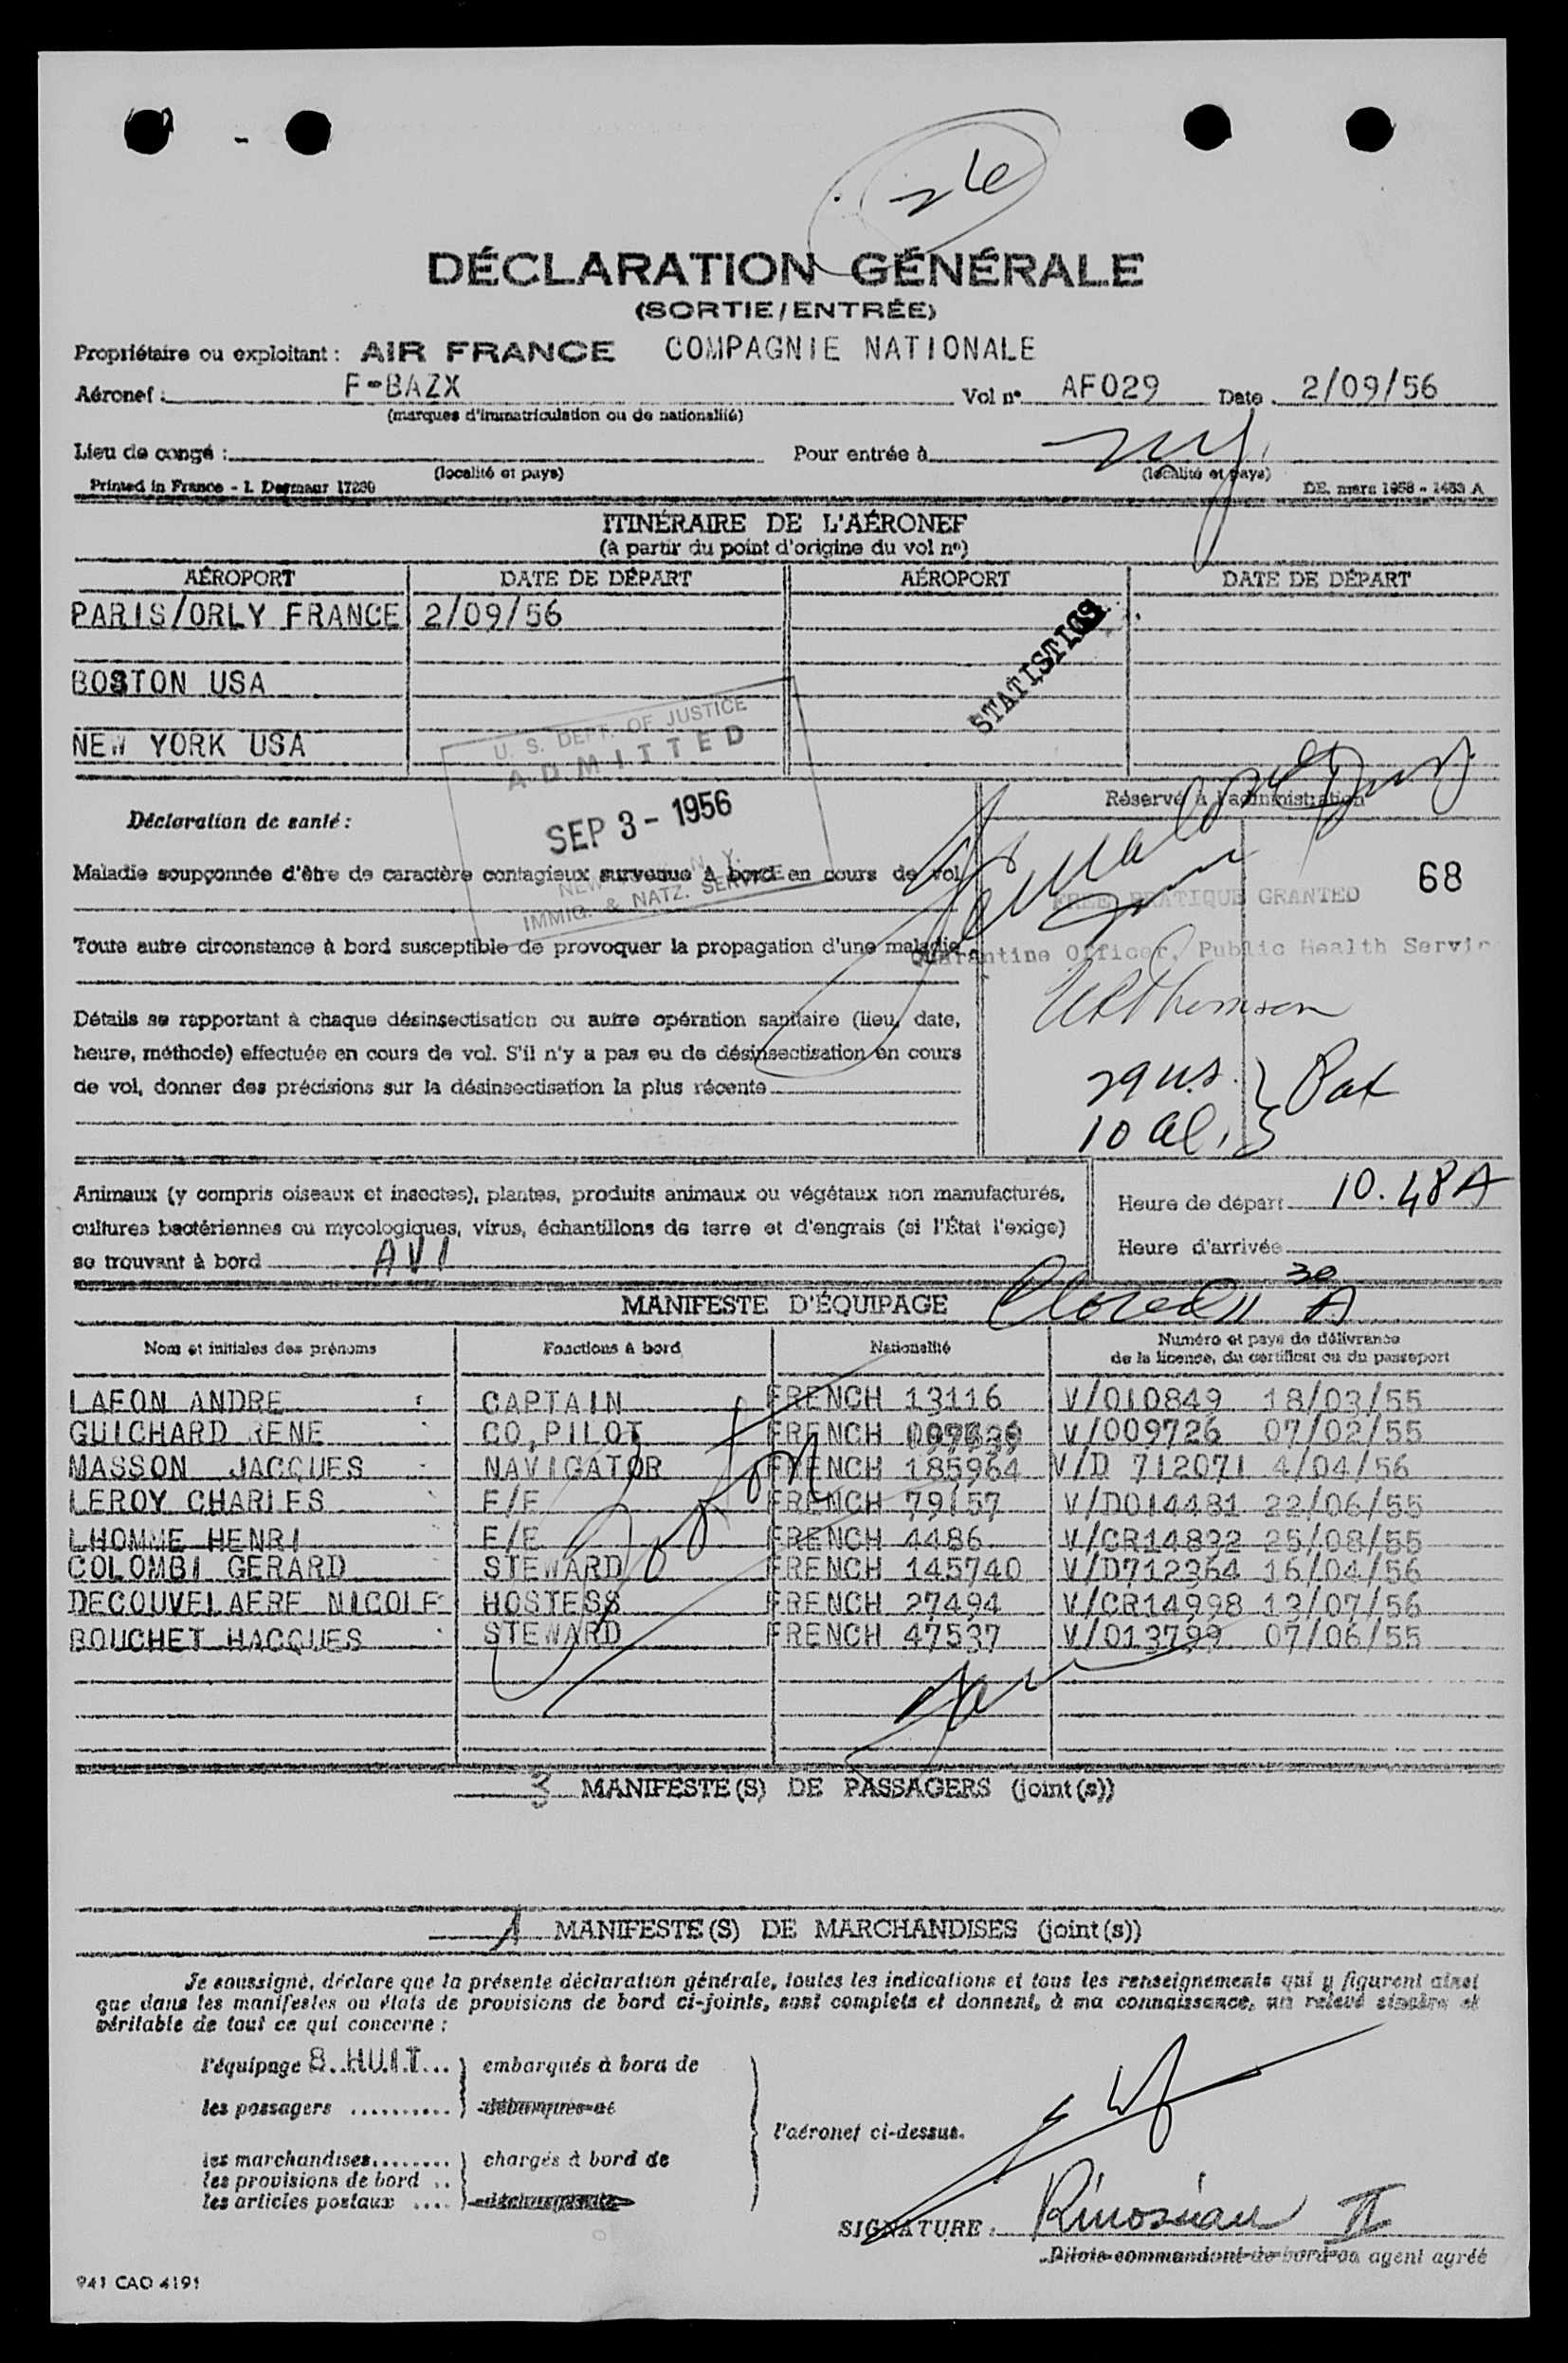 26
DÉCLARATION GÉNÉRALE
(SORTIE/ENTRÉE)
Propriétaire ou exploitant : AIR FRANCE COMPAGNIE NATIONALE
Aéronef : F-BAZX Vol nº AF029 Date 2/09/56
(marques d'immatriculation ou de nationalité)
Lieu de congé : Pour entrée à NY
(localité et pays) (localité et pays)
Printed in France - I. 17230 DE. mars 1483 A
ITINÉRAIRE DE L'AÉRONEF
(à partir du point d'origine du vol nº)
AÉROPORT DATE DE DÉPART AÉROPORT DATE DE DÉPART
PARIS/ORLY FRANCE 2/09/56
STATISTICS
BOSTON USA
NEW YORK USA
U. S. DEPT. OF JUSTICE
ADMITTED
SEP 3 - 1956
NEW N. Y.
IMMIG. & NATZ. SERVICE
Déclaration de santé :
Réservé à l'administration
Maladie soupçonnée d'être de caractère contagieux survenue à bord en cours de vol
68
FREE PRATIQUE GRANTED
Toute autre circonstance à bord susceptible de provoquer la propagation d'une maladie
Quarantine Officer, Public Health Servic
Détails se rapportant à chaque désinsectisation ou autre opération sanitaire (lieu, date,
heure, méthode) effectuée en cours de vol. S'il n'y a pas eu de désinsectisation en cours
de vol, donner des précisions sur la désinsectisation la plus récente
29 U.S. } Pax
10 al.
Animaux (y compris oiseaux et insectes), plantes, produits animaux ou végétaux non manufacturés,
cultures bactériennes ou mycologiques, virus, échantillons de terre et d'engrais (si l'État l'exige)
se trouvant à bord AVI
Heure de départ 10.48A
Heure d'arrivée
MANIFESTE D'ÉQUIPAGE
Cleared 11 30 A
Nom et initiales des prénoms Fonctions à bord Nationalité Numéro et pays de délivrance
de la licence, du certificat ou du passeport
LAFON ANDRE CAPTAIN FRENCH 13116 V/010849 18/03/55
GUICHARD RENE CO,PILOT FRENCH V/009726 07/02/55
MASSON JACQUES NAVIGATOR FRENCH 185964 V/D 712071 4/04/56
LEROY CHARLES F/E FRENCH 79157 V/D014481 22/06/55
LHOMME HENRI F/E FRENCH 4486 V/CR14832 25/08/55
COLOMBI GERARD STEWARD FRENCH 145740 V/D712364 16/04/56
DECOUVELAERE NICOLE HOSTESS FRENCH 27494 V/CR14998 13/07/56
BOUCHET HACQUES STEWARD FRENCH 47537 V/013799 07/06/55
3 MANIFESTE(S) DE PASSAGERS (joint(s))
1 MANIFESTE(S) DE MARCHANDISES (joint(s))
Je soussigné, déclare que la présente déclaration générale, toutes les indications et tous les renseignements qui y figurent ainsi
que dans les manifestes ou états de provisions de bord ci-joints, sont complets et donnent, à ma connaissance, un relevé sincère et
véritable de tout ce qui concerne :
l'équipage 8..HUIT... } embarqués à bord de
les passagers .......... } débarqués de
l'aéronef ci-dessus.
les marchandises........ } chargés à bord de
les provisions de bord ..
les articles postaux ....
SIGNATURE :
Pilote commandant de bord ou agent agréé
941 CAO 4191